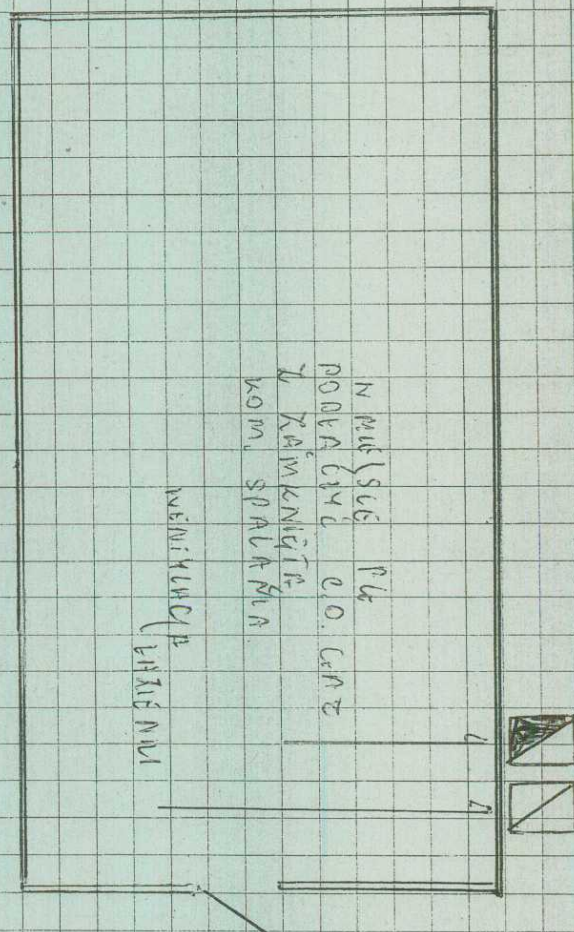 W MIEJSCE PG
PODŁĄCZYĆ C.O. GAZ
Z ZAMKNIĘTĄ
KOM. SPALANIA.
WENTYLACJA
ŁAZIENKI